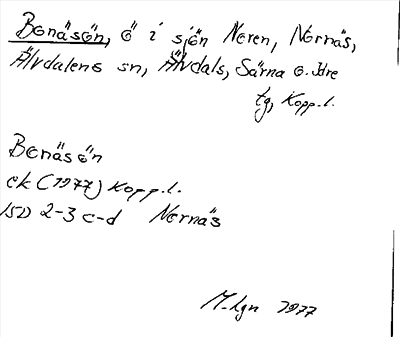 Bonäsön, ö i sjön Noren, Nornäs,
Älvdalens sn, Älvdals, Särna o. Idre
tg, Kopp.l.
Bonäsön
ek (1977) Kopp.l.
15D 2-3 c-d Nornäs
M-lgn 1977